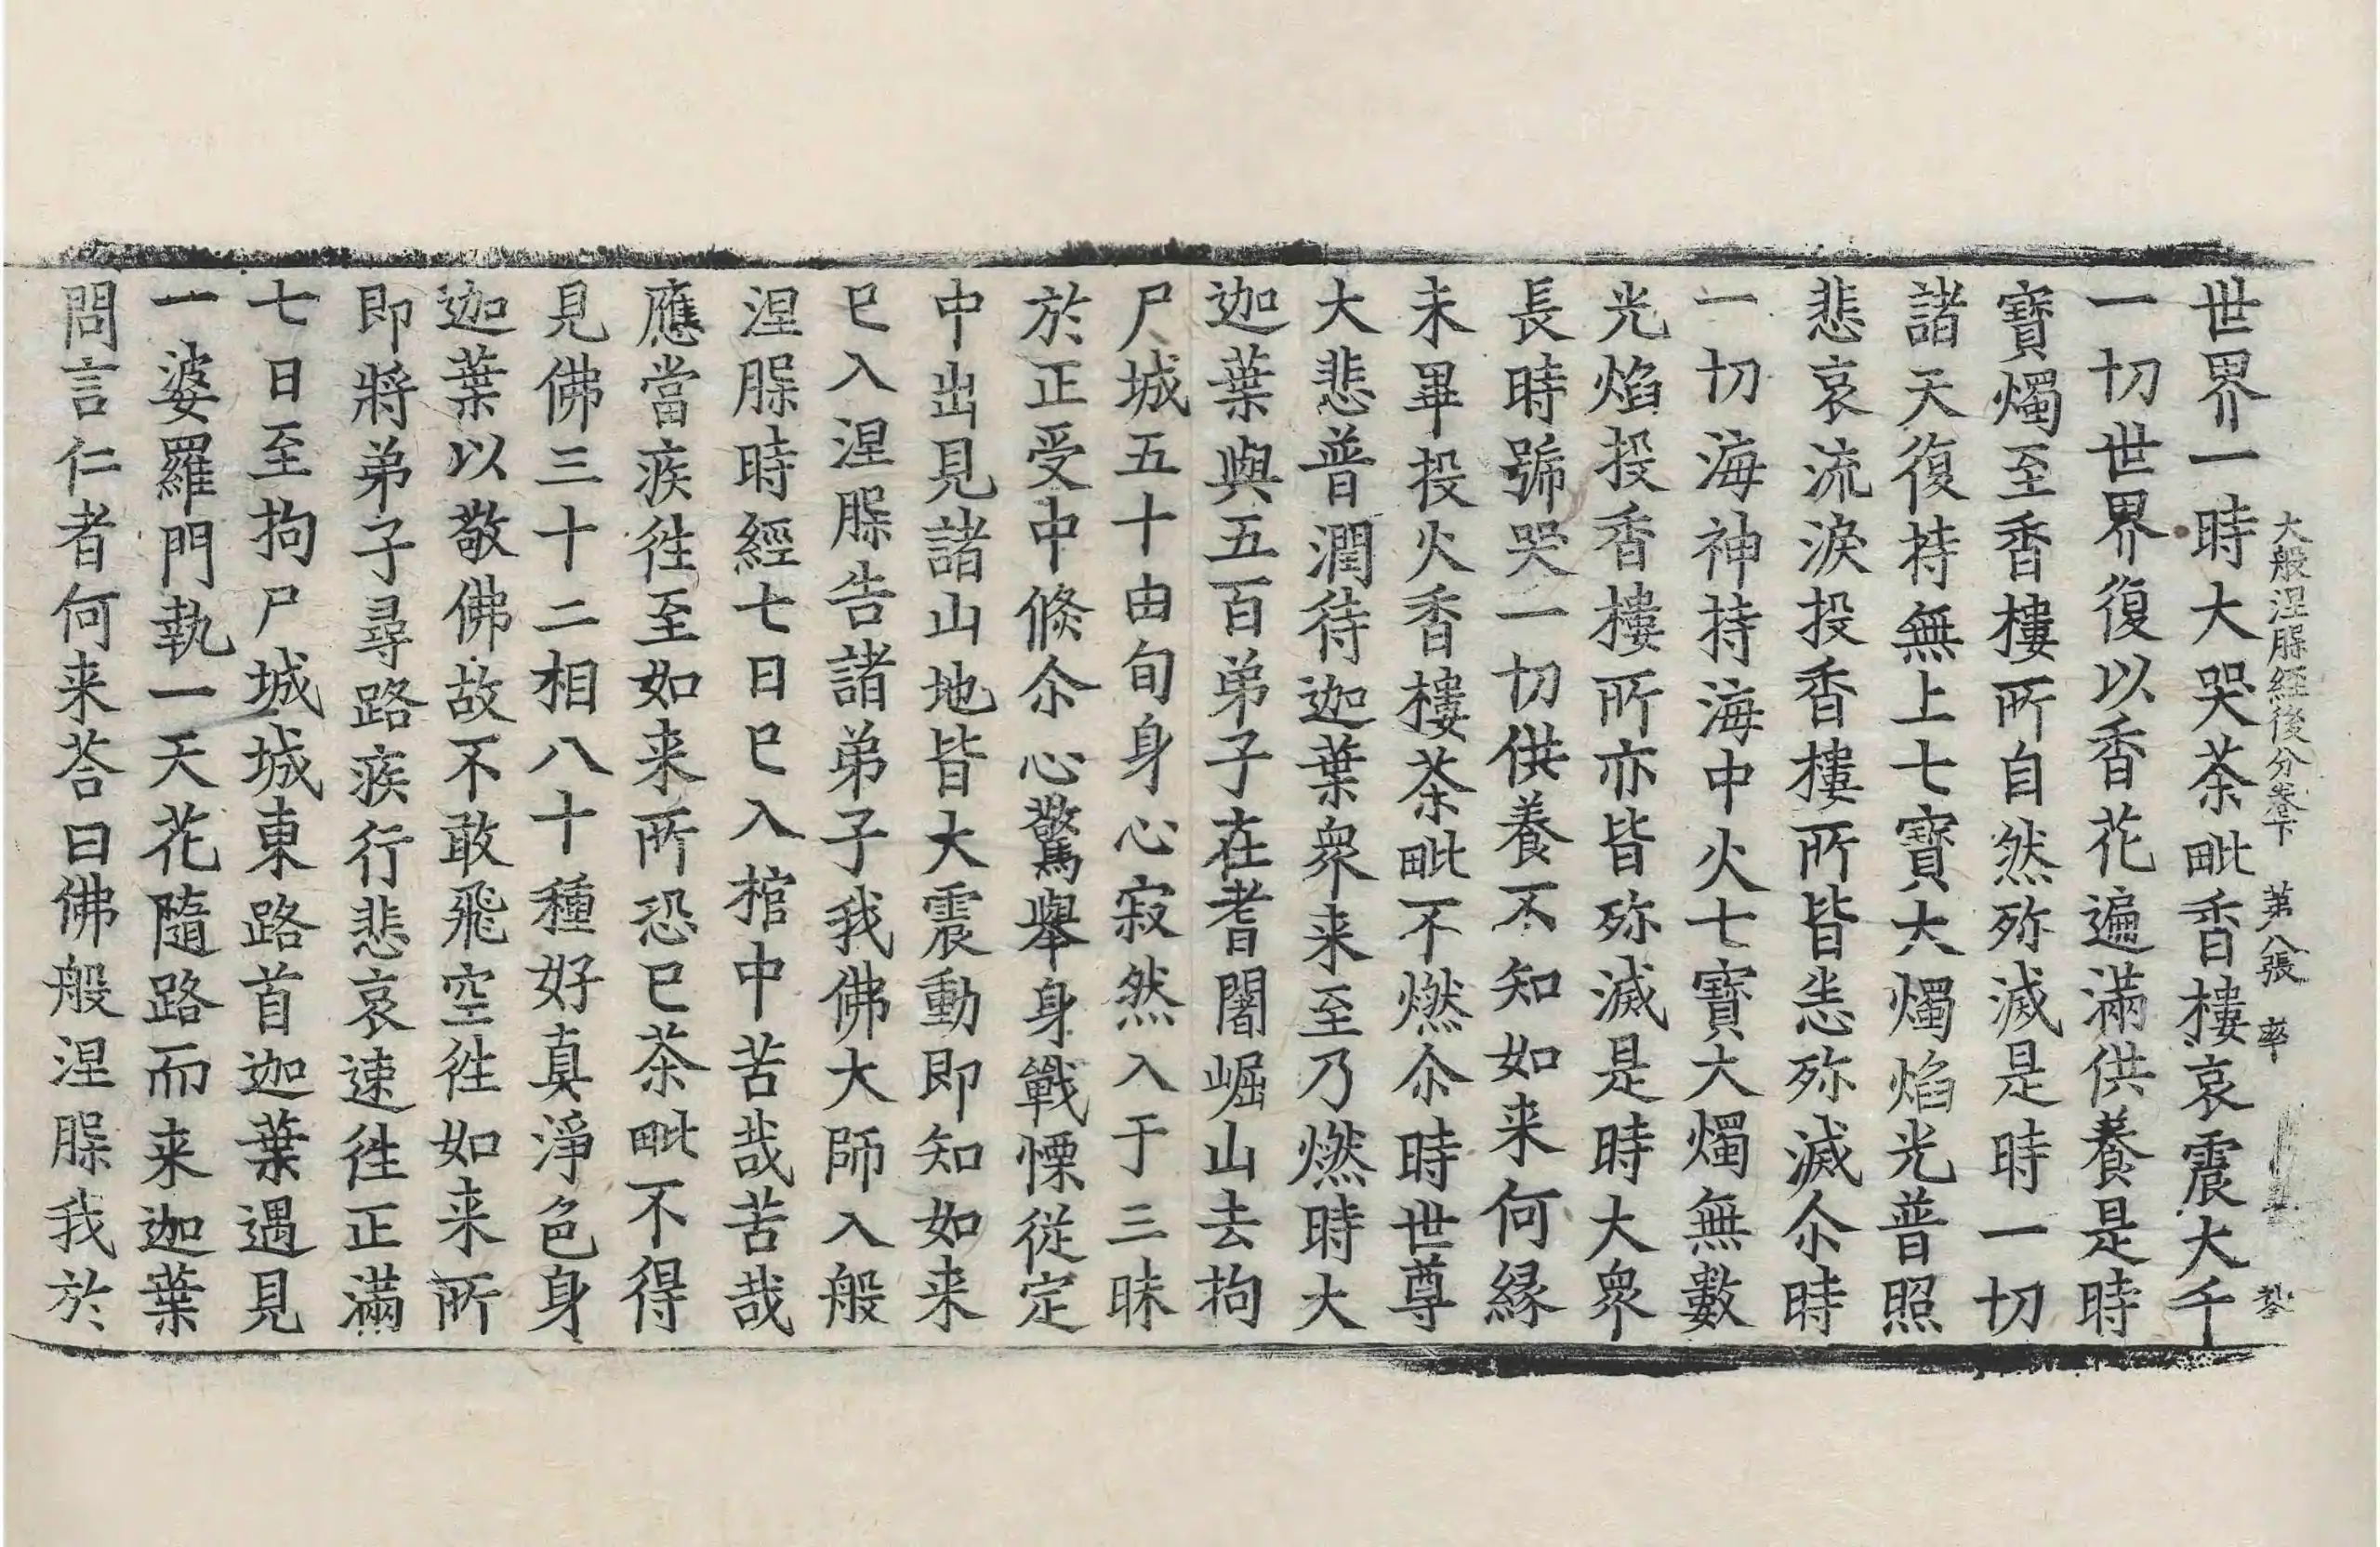 大般涅槃經後分卷下 第八張 率
世界一時大哭茶毗香樓哀震大千
一切世界復以香花遍滿供養是時
寶燭至香樓所自然殄滅是時一切
諸天復持無上七寶大燭焰光普照
悲哀流淚投香樓所皆悉殄滅尒時
一切海神持海中火七寶大燭無數
光焰投香樓所亦皆殄滅是時大衆
長時號哭一切供養不知如来何緣
未畢投火香樓茶毗不燃尒時世尊
大悲普潤待迦葉衆来至乃燃時大
迦葉與五百弟子在耆闍崛山去拘
尸城五十由旬身心寂然入于三昧
於正受中倏尒心驚舉身戰慄從定
中出見諸山地皆大震動即知如来
已入涅槃告諸弟子我佛大師入般
涅槃時經七日已入棺中苦哉苦哉
應當疾徃至如来所恐已茶毗不得
見佛三十二相八十種好真淨色身
迦葉以敬佛故不敢飛空徃如来所
即將弟子尋路疾行悲哀速徃正滿
七日至拘尸城城東路首迦葉遇見
一婆羅門執一天花隨路而来迦葉
問言仁者何来荅曰佛般涅槃我於